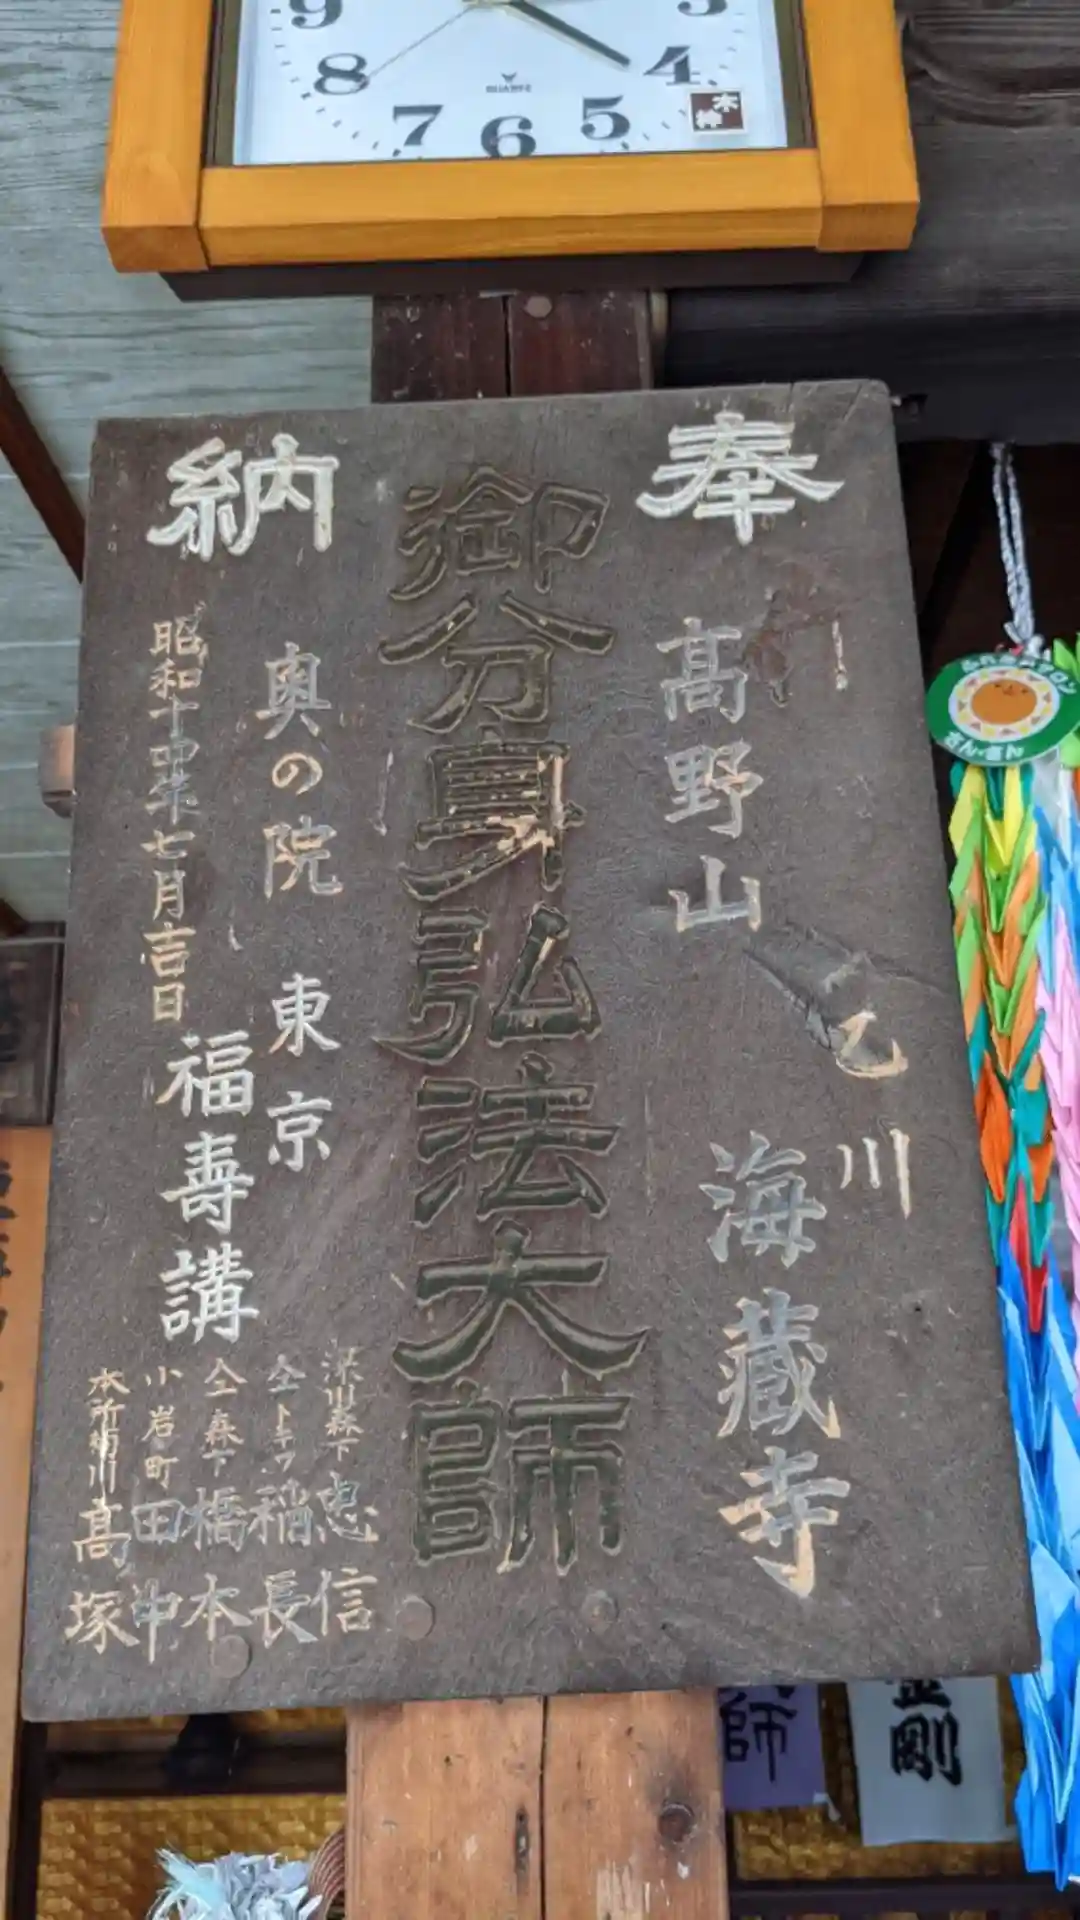 9
3
8
4
7
6
5
QUARTZ
木神
奉納
高野山
乙川
海藏寺
御分身弘法大師
奥の院
東京
福壽講
昭和十四年七月吉日
深川森下
信
仝
稲長
仝森下
橋本
小岩町
田中
本所
高塚
さんさん
師
金剛